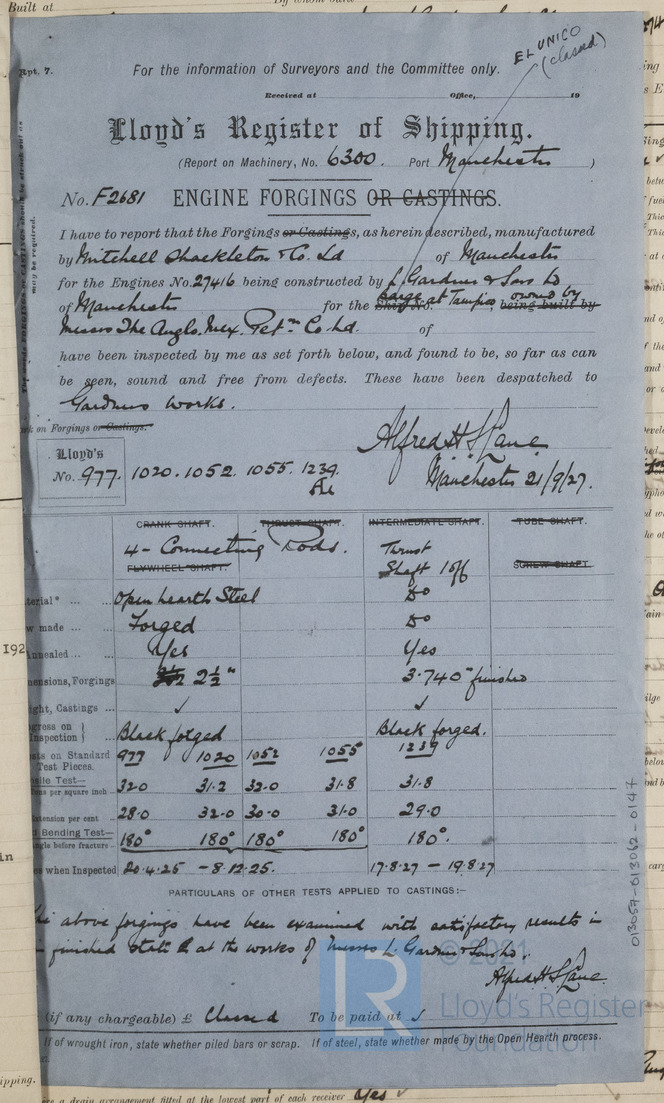 Built at
EL UNICO
(classed)
Rpt. 7.
For the information of Surveyors and the Committee only.
Received at Office, 19
Lloyd's Register of Shipping.
(Report on Machinery, No. 6300. Port Manchester )
No. F2681 ENGINE FORGINGS OR CASTINGS.
I have to report that the Forgings or Castings, as herein described, manufactured
by Mitchell Shackleton & Co. Ld of Manchester
for the Engines No. 27416 being constructed by L. Gardner & Sons Ld
of Manchester for the Ship No. barge at Tampico, owned by being built by
Messrs The Anglo. Mex. Petm Co Ld. of
have been inspected by me as set forth below, and found to be, so far as can
be seen, sound and free from defects. These have been despatched to
Gardners Works.
rk on Forgings or Castings.
Alfred H S Lane
Lloyd's
No. 977. 1020. 1052. 1055. 1239.
Manchester 21/9/27.
CRANK SHAFT. THRUST SHAFT. INTERMEDIATE SHAFT. TUBE SHAFT.
4 - Connecting Rods. Thrust
FLYWHEEL SHAFT. Shaft 1 off SCREW SHAFT
terial* ... Open hearth Steel Do
w made ... Forged Do
Annealed ... Yes Yes
mensions, Forgings 2½" 3.740" finished
ght, Castings ... ✓ ✓
gress on
Inspection } Black forged Black forged.
sts on Standard
Test Pieces. 977 1020 1052 1055 1239
sile Test—
ns per square inch 32.0 31.2 32.0 31.8 31.8
xtension per cent 28.0 32.0 30.0 31.0 29.0
d Bending Test—
ngle before fracture 180° 180° 180° 180° 180°.
es when Inspected 20.4.25 - 8.12.25. 17.8.27 - 19.8.27
PARTICULARS OF OTHER TESTS APPLIED TO CASTINGS:—
he above forgings have been examined with satisfactory results in
finished state & at the works of Messrs L. Gardner & Sons Ld.
Alfred H S Lane
(if any chargeable) £ Classed To be paid at
If of wrought iron, state whether piled bars or scrap. If of steel, state whether made by the Open Hearth process.
013057-013062-0147
© 2021
LR
Lloyd's Register
Foundation
192
in
ipping.
a drain arrangement fitted at the lowest part of each receiver Yes